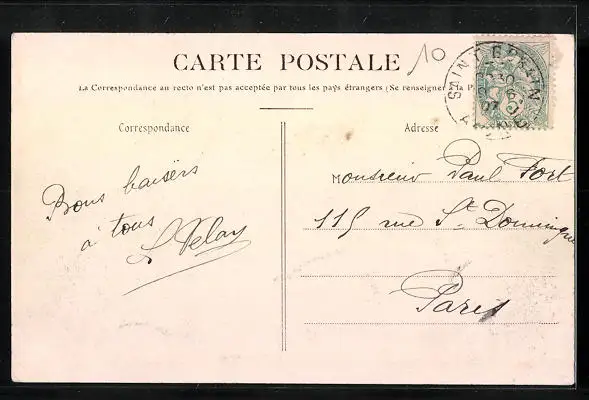 CARTE POSTALE
10
La Correspondance au recto n'est pas acceptée par tous les pays étrangers (Se renseigner à la P
SAINT GERMAIN
Correspondance
Adresse
Bons baisers
à tous
L Velay
Monsieur Paul Fort
115 rue St. Dominique
Paris